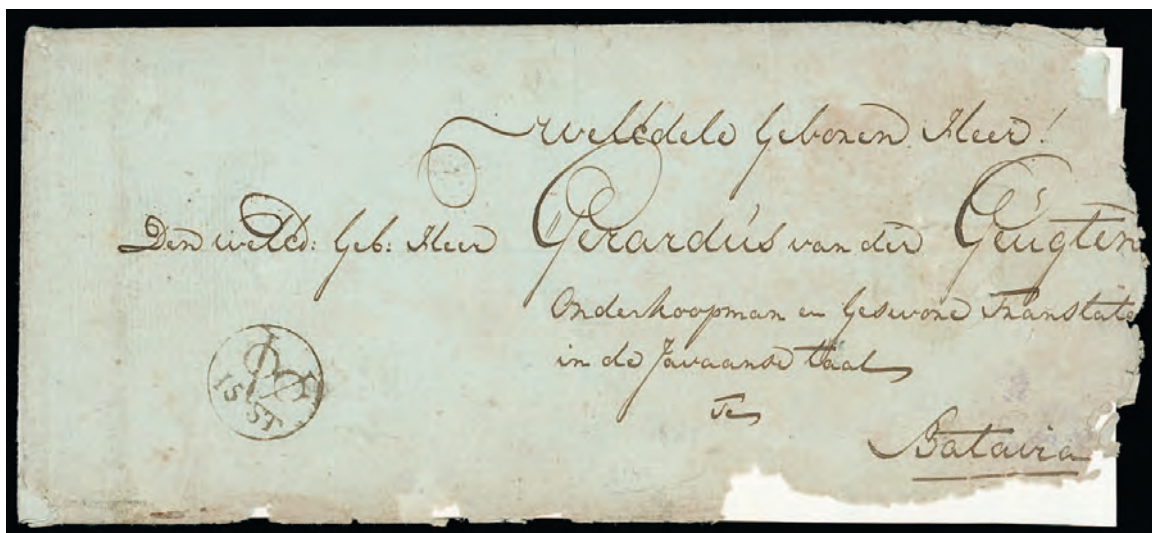 WelEdele Geboren Heer!
Den welEd: Geb: Heer Gerardus van der Geugten
Onderkoopman en Geswore Translate
in de Javaanse taal
Te
Batavia
15 ST